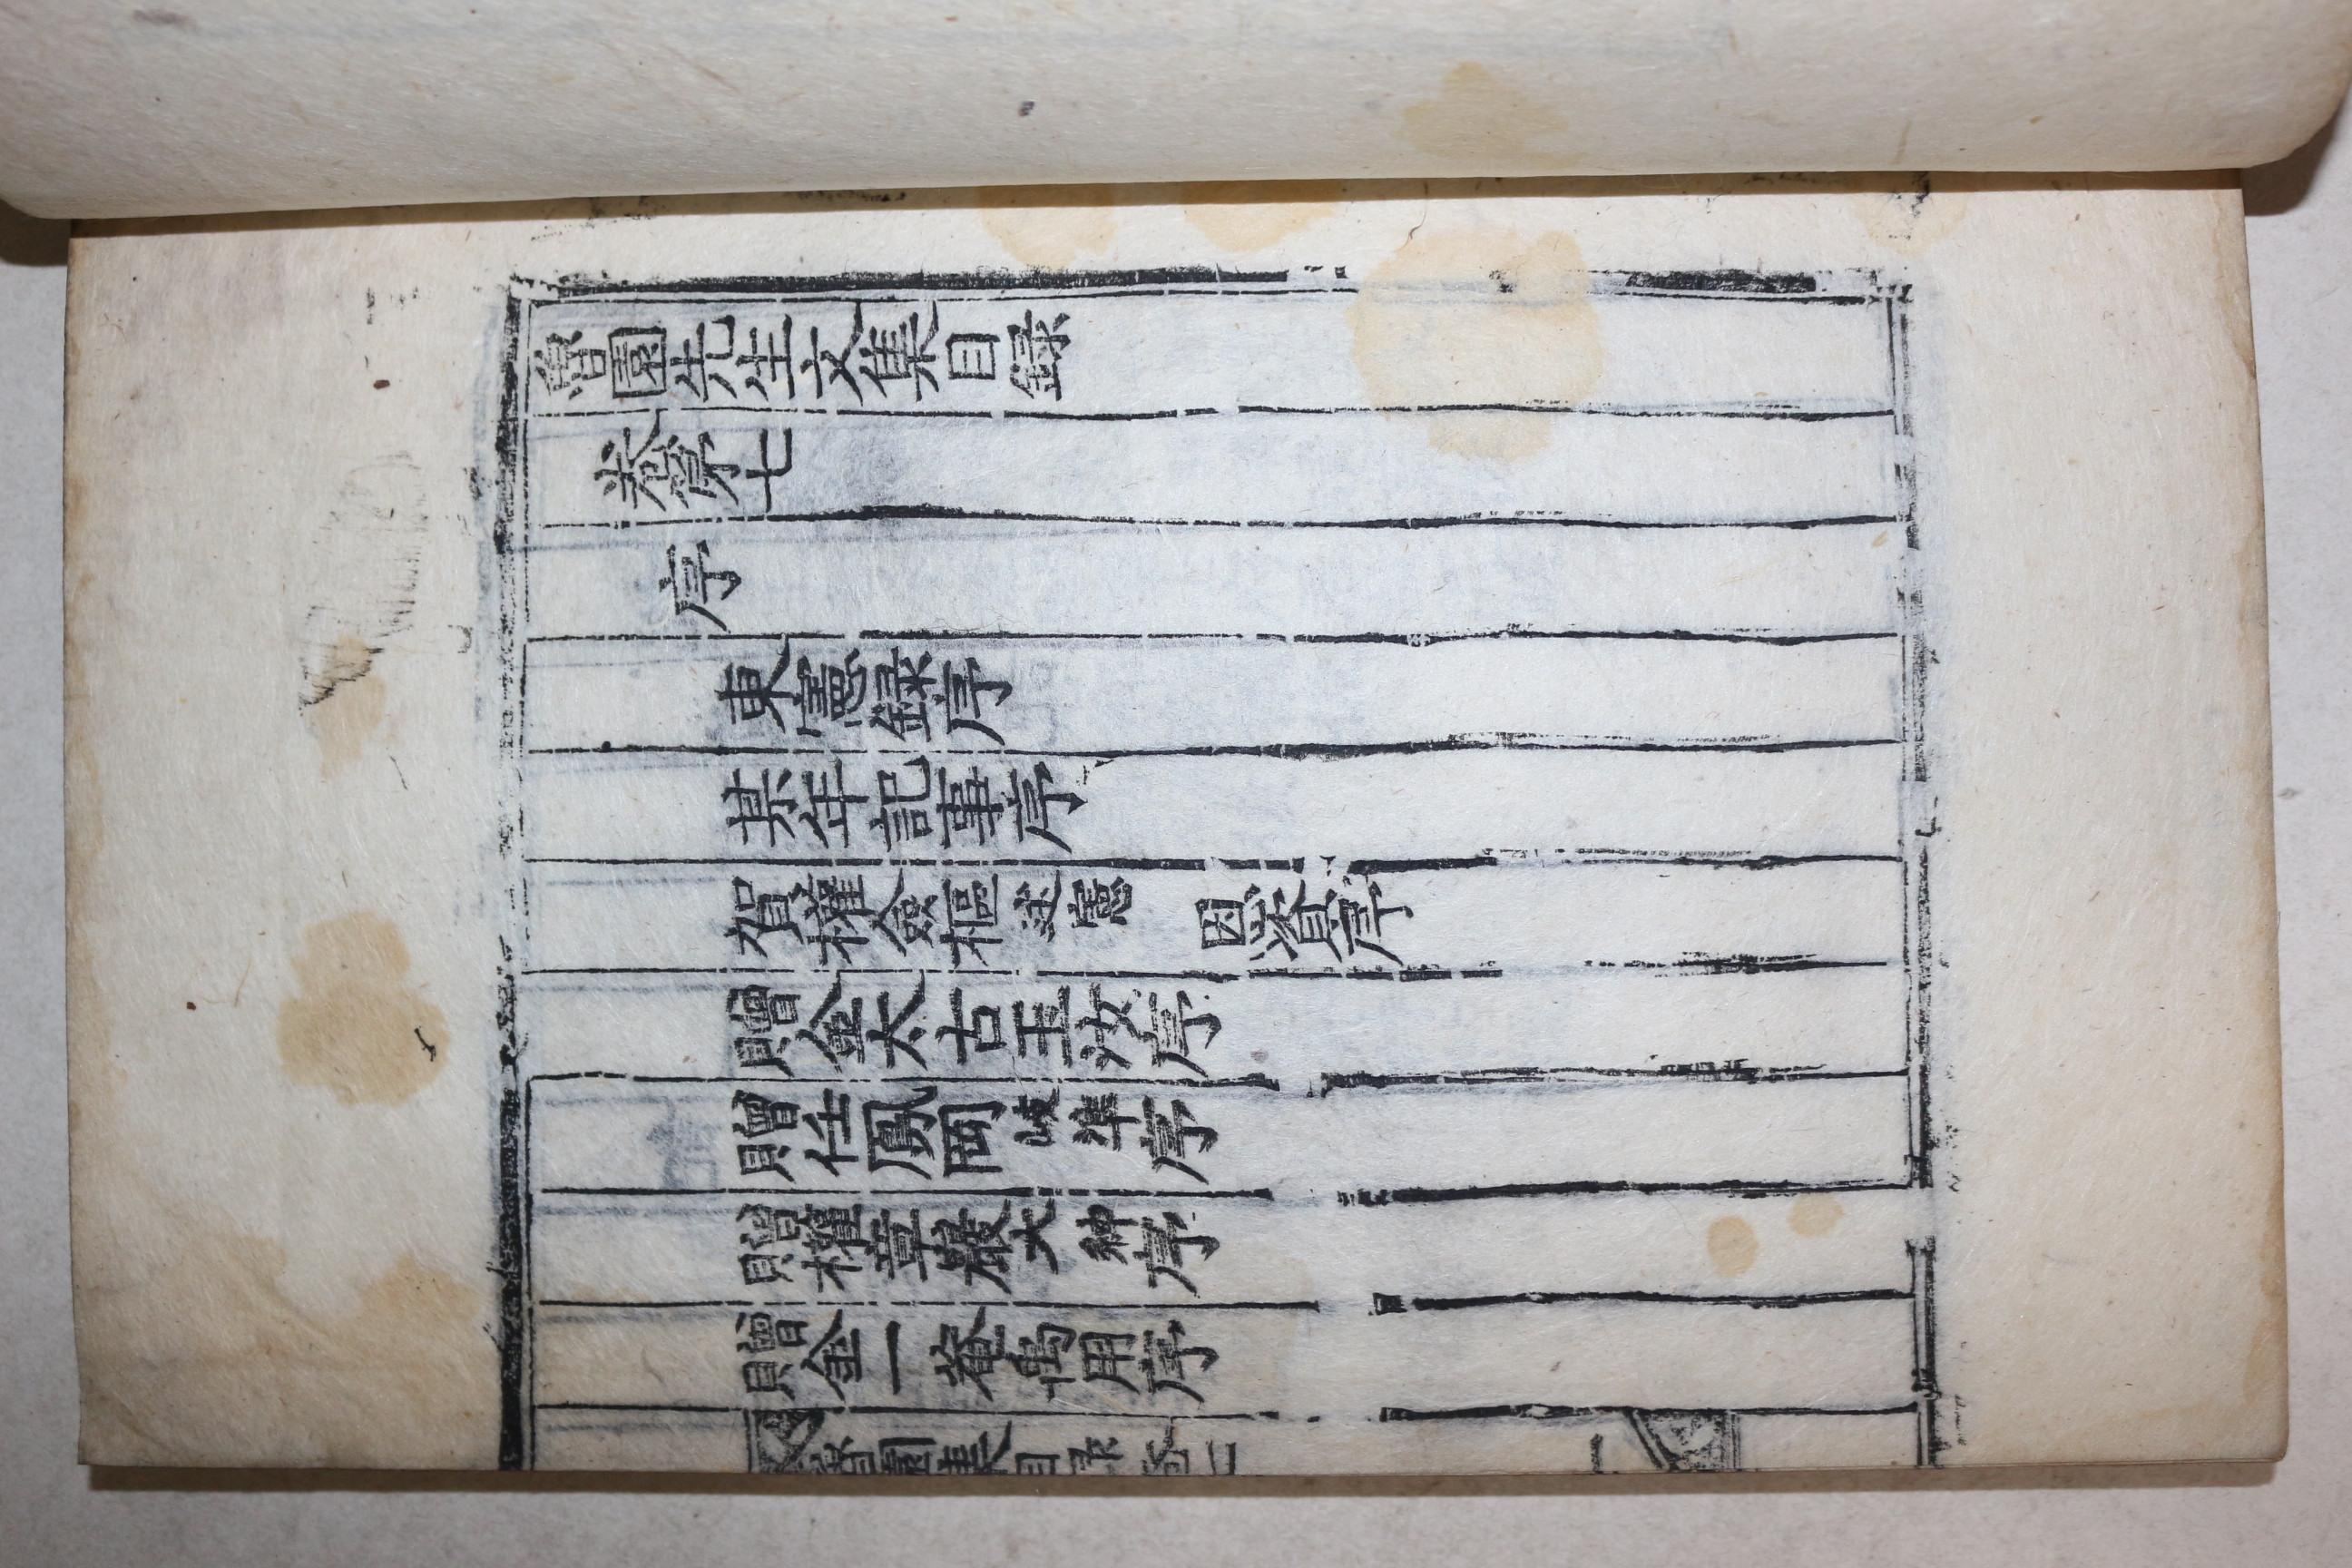 魯園先生文集目錄
卷第七
序
東憲錄序
某年記事序
賀權僉樞述憲 恩資序
贈金太古玉汝序
贈任鳳岡岐準序
贈權葦巖大紳序
贈金一菴萬用序
魯園集目录